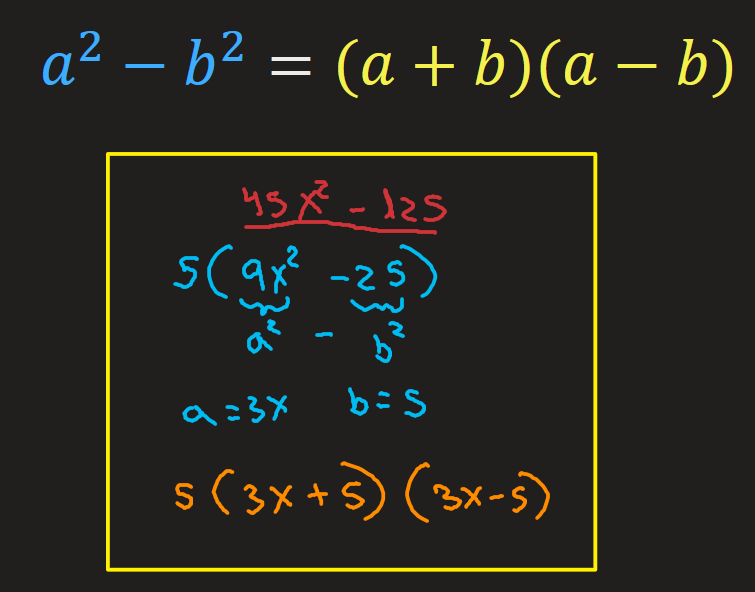 a² − b² = (a + b)(a − b)
45x² - 125
5(9x² - 25)
a² - b²
a = 3x b = 5
5(3x + 5)(3x - 5)